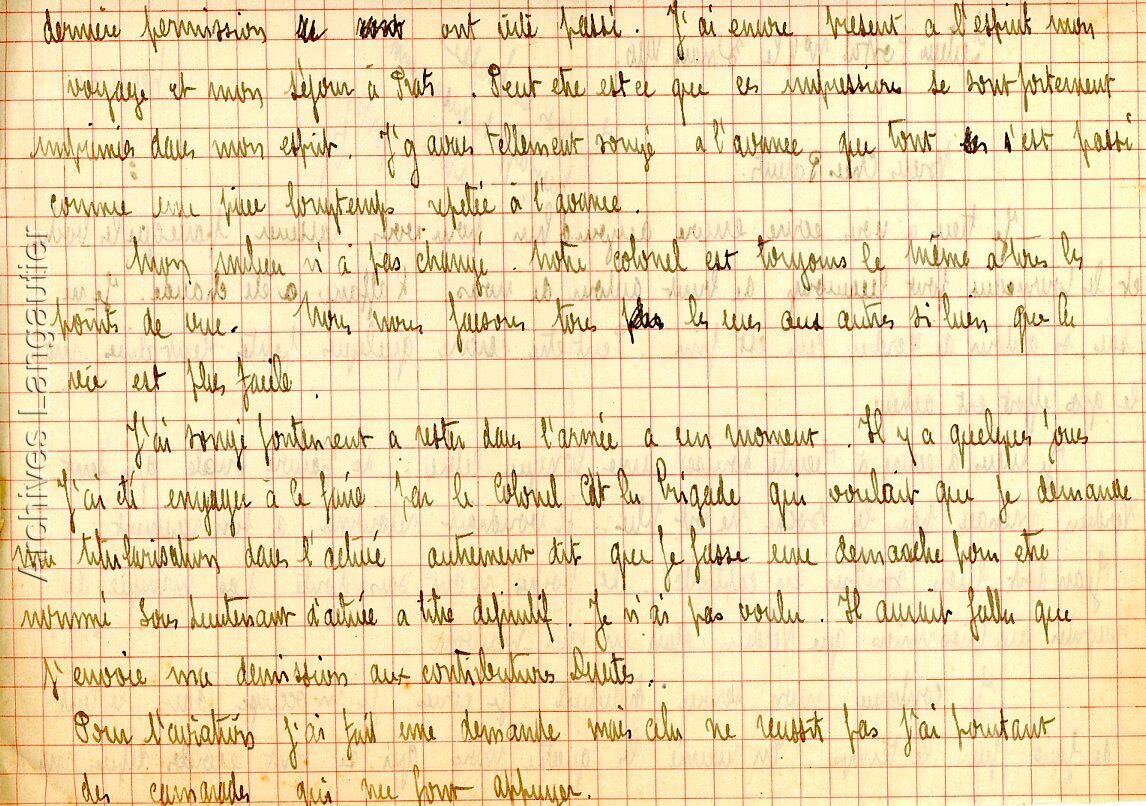 dernière permission se sont ont vite passé. J'ai encore present a l'esprit mon
voyage et mon séjour à Prats. Peut etre est ce que ces impressions se sont fortement
imprimées dans mon esprit. J'y avais tellement songé a l'avance que tout s'est passé
comme une piece longtemps repetée à l'avance.
Mon milieu n'a pas changé. Notre colonel est toujours le même a tous les
points de vue. Nous nous faisons tous les uns aux autres si bien que la
vie est plus facile.
J'ai songé fortement a rester dans l'armée a un moment. Il y a quelques jours
J'ai été engager à le faire par le Colonel Cdt la Brigade qui voulait que je demande
ma titularisation dans l'active autrement dit que je fasse une demarche pour etre
nommé Sous Lieutenant d'active a titre definitif. Je n'ai pas voulu. Il aurait fallu que
j'envoie ma demission aux contributions Directes.
Pour l'aviation j'ai fait une demande mais cela ne reussit pas j'ai pourtant
des camarades qui me font appuyer.
Archives Langautier